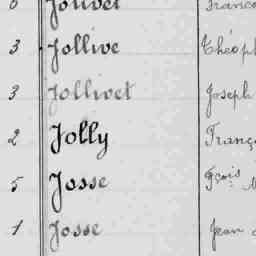 6 Jolivel Franco
3 Jollive Théoph
3 Jollivet Joseph
2 Jolly Franç
5 Josse Fçois
1 Josse Jean